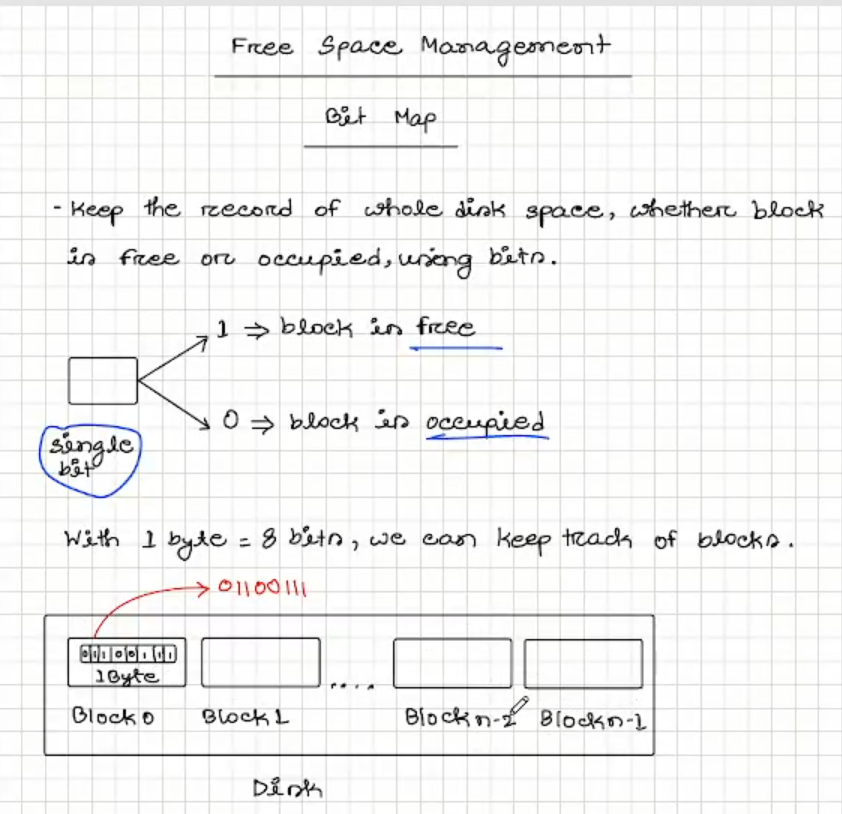 Free Space Management
Bit Map
- Keep the record of whole disk space, whether block
is free or occupied, using bits.
1 ⇒ block is free
0 ⇒ block is occupied
single
bit
With 1 byte = 8 bits, we can keep track of blocks.
01100111
0 1 1 0 0 1 1 1
1 Byte
.....
Block 0 Block 1 Block n-2 Block n-1
Disk